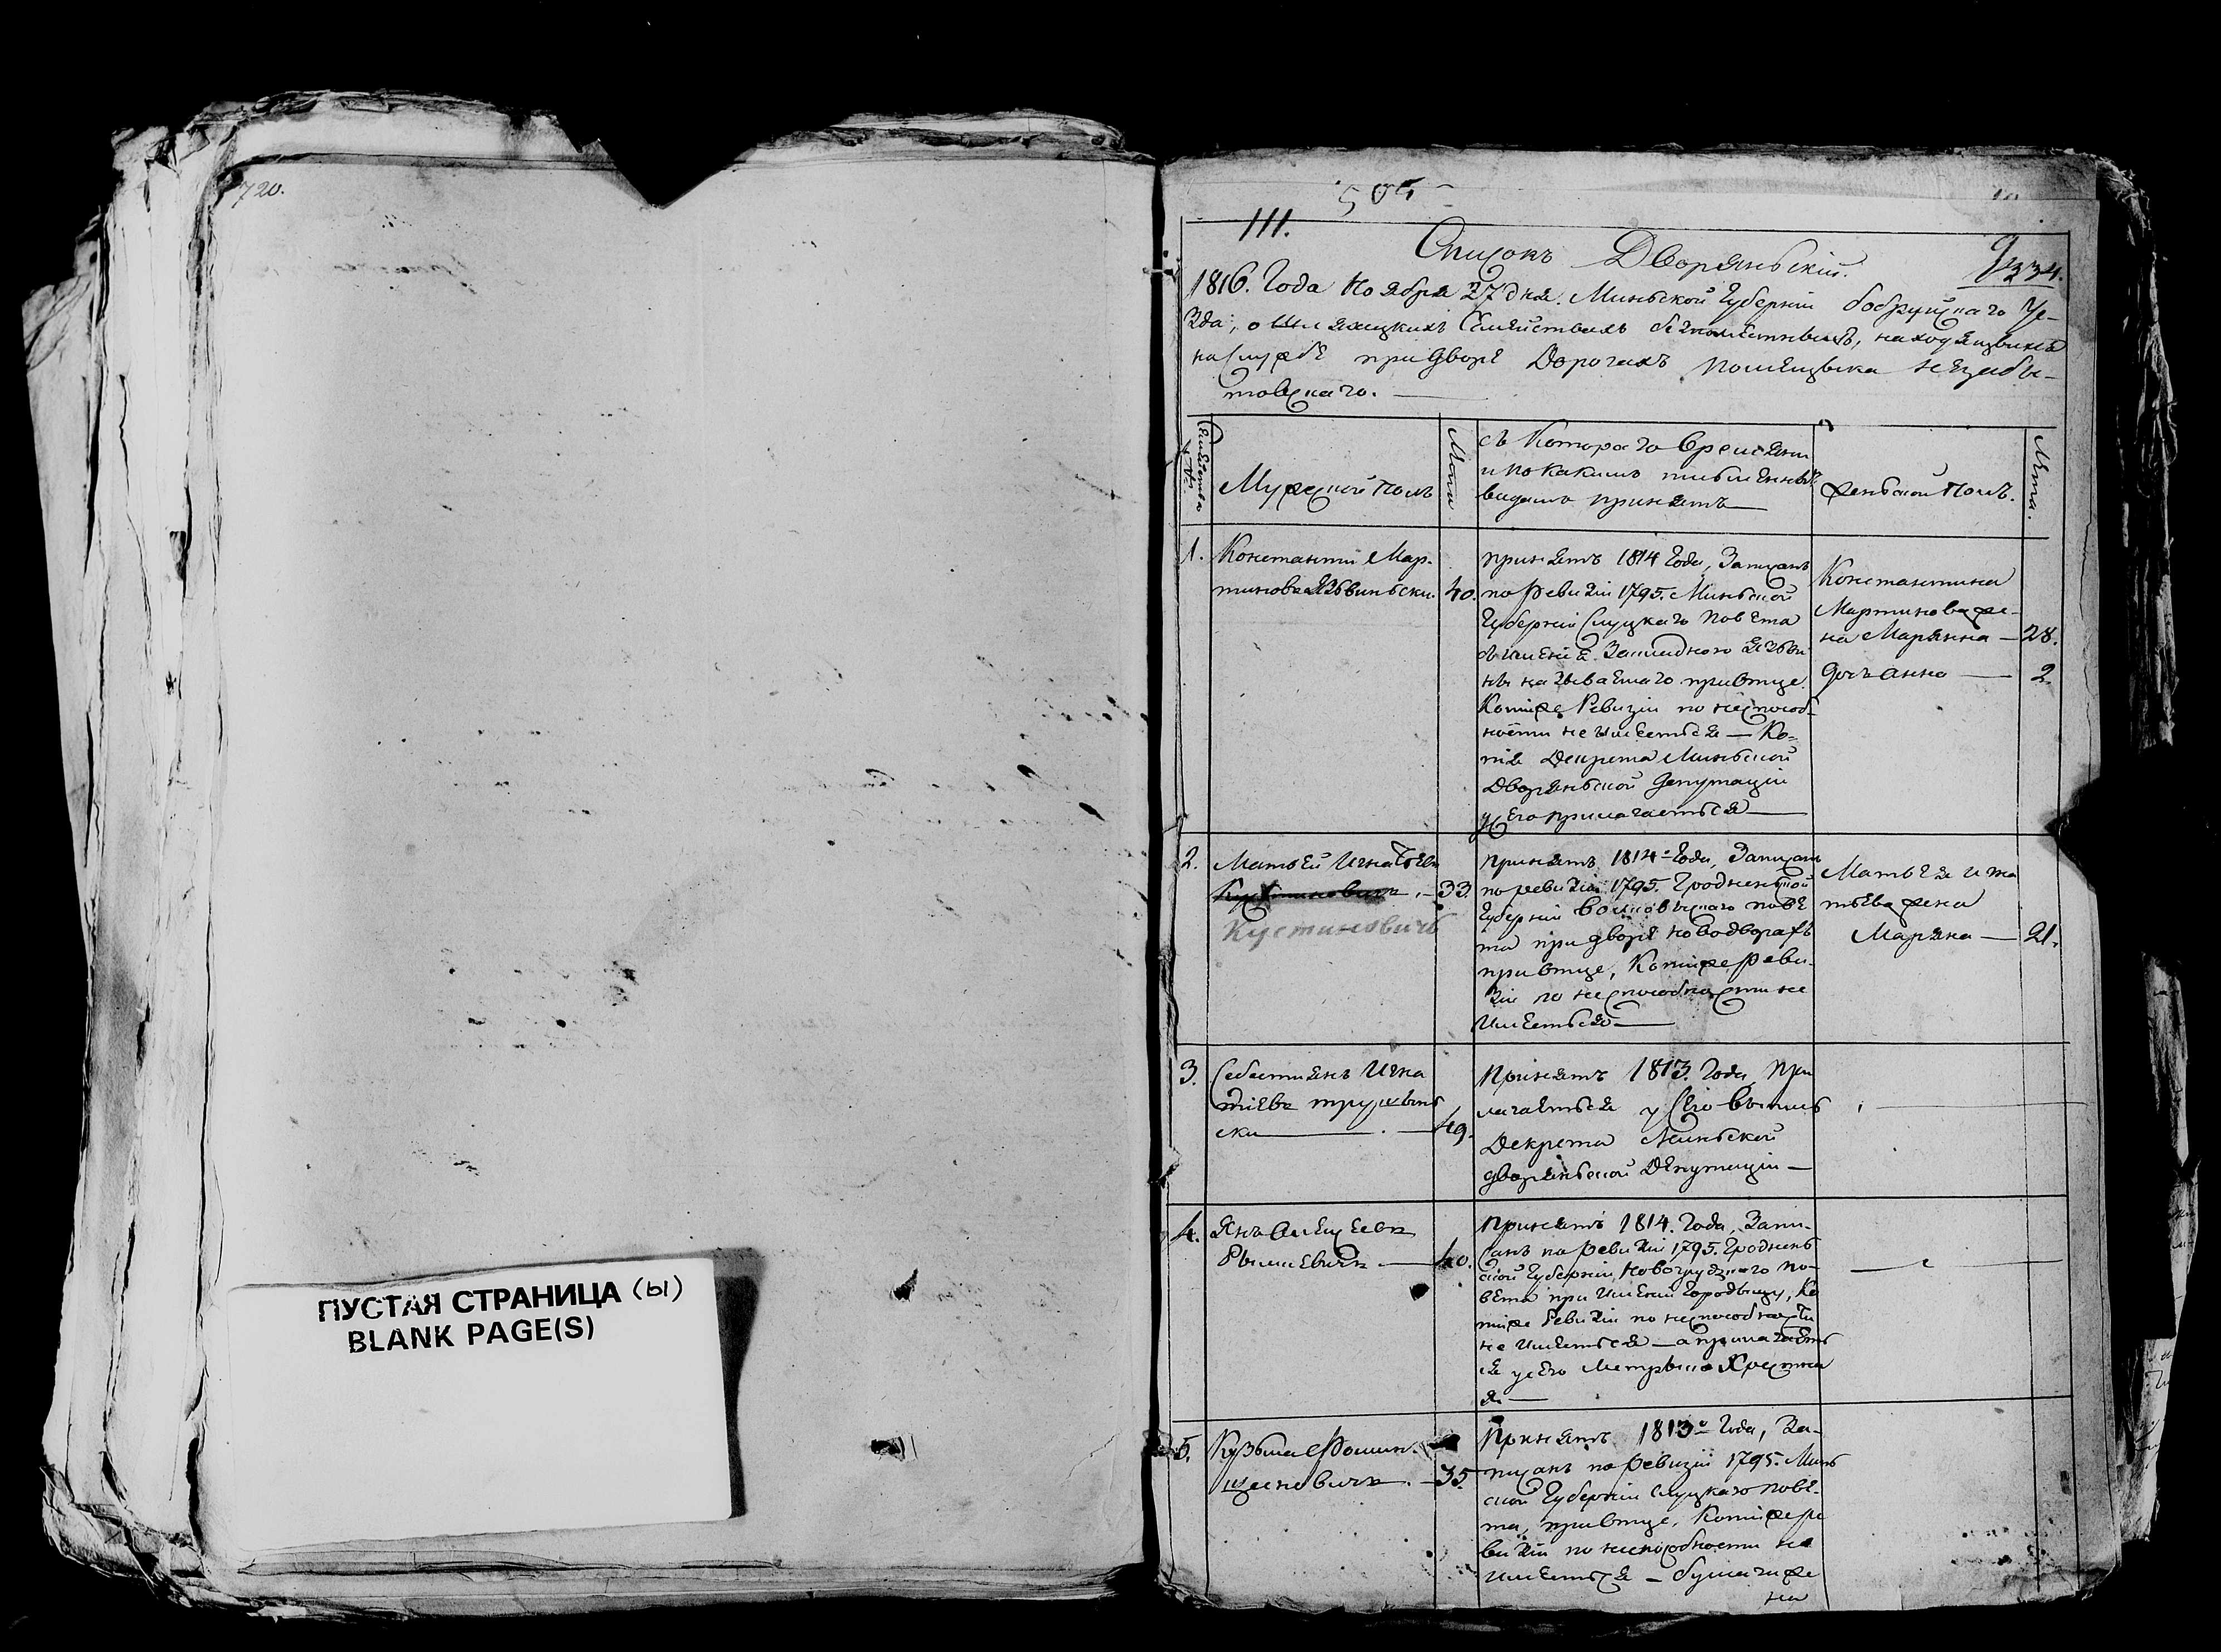 720.
ПУСТАЯ СТРАНИЦА (ы)
BLANK PAGE(S)
505
111.
Списокъ Дворяньскій.
334.
1816. Года Ноября 27 дня. Миньской Губерніи бобруйскаго Уе-
зда, о Шляхецкихъ Семѣйствахъ безпомѣстныхъ, находящыхся
на службѣ при дворѣ Дорогахъ помѣщыка
товскаго.
Семѣйства №.
Мужеской Полъ
Лѣта
съ Котораго времяни
и по какимъ письмѣннымъ
видамъ принятъ
женьской Полъ.
Лѣта.
1.
Константи Мар-
тиновъ Язвиньски.
40.
принятъ 1814 Года, Записанъ
по ревизіи 1795. Миньской
Губерніи Слуцкаго повѣта
при отце.
Копія же Ревизіи по неспособ-
ности не имѣеться — Ко-
пія Декрета Миньской
Дворяньской Депутаціи
у сего прилагаеться
Константина
Мартинова же-
на Марянна — 28.
дочь Анна — 2.
2.
Матьей Игнатьевъ
Кустиновичъ
33.
принятъ 1814 Года, Записанъ
по ревизіи 1795. Гродненьской
Губерніи Волковыскаго повѣ
та при дворѣ Новодворахъ
при отце, Копія же реви-
зіи по неспособности не
имѣеться
Матьѣя Игна
тьева жена
Маряна — 21.
3.
Себастіянъ Игна
тіевъ
ски
49.
принятъ 1813. Года, при
лагаѣться у Сего выпись
Декрета Миньской
дворяньской Депутаціи —
4.
Янъ Алексеевъ
Рымшевичъ
40.
принятъ 1814. Года, Запи-
санъ по ревизіи 1795. Гродненьс
кой Губерніи Новогрудзкаго по-
вѣта при имѣніи Городыщу, Ко
пія же Ревизіи по неспособности
не имѣеться — а прилагаеть
ся у сего метрыка Хрестна
я —
5.
Кузьма Фомин.
35.
принятъ 1813 Года, За-
писанъ по ревизіи 1795. Минь
ской Губерніи Слуцкаго повѣ-
та, при отце, Копія же ре
визіи по неспособности не
имѣеться — бумаги же
на